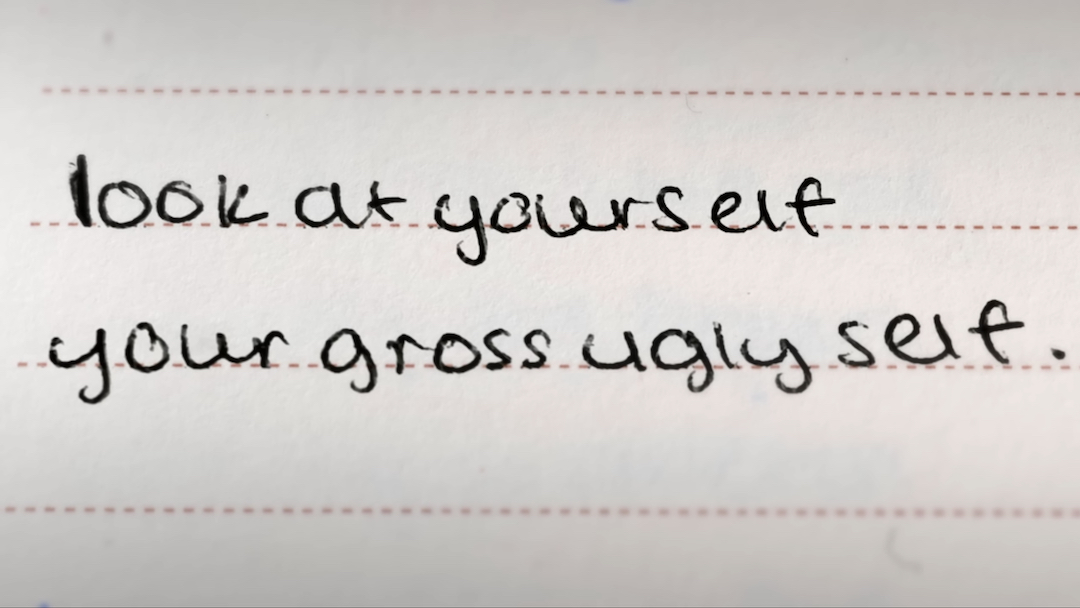 look at yourself
your gross ugly self.